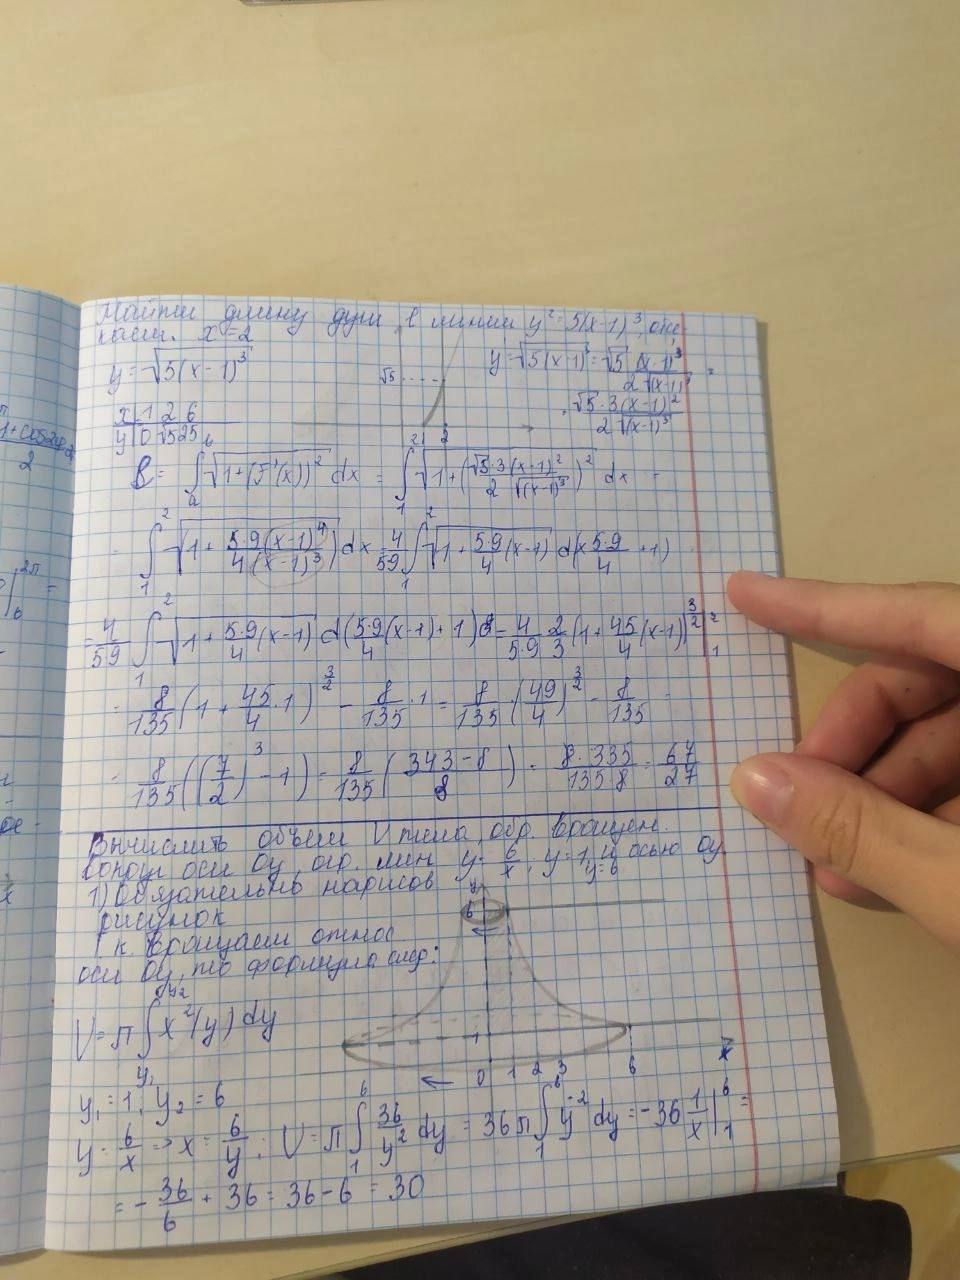 Найти длину дуги l линии y² = 5(x-1)³, отс
касат. x = 2
y = √5(x-1)³
y = √5(x-1)³ = √5 (x-1)³ / 2√(x-1)³ =
= √5·3(x-1)² / 2√(x-1)³
√5
2
x 1 2 6
y 0 √5 25
l = ∫ₐᵇ √1+(f'(x))² dx = ∫₁² √1+(√5·3(x-1)² / 2√(x-1)³)² dx =
= ∫₁² √1+ 5·9(x-1)⁴ / 4(x-1)³ dx = 4/59 ∫₁² √1+ 5·9/4 (x-1) d(x 5·9/4 +1)
= 4/59 ∫₁² √1+ 5·9/4 (x-1) d(5·9/4 (x-1)+1) = 4/5·9 · 2/3 (1+ 45/4 (x-1))^3/2 |₁²
= 8/135 (1+ 45/4 ·1)^3/2 - 8/135 ·1 = 8/135 · (49/4)^3/2 - 8/135 =
= 8/135 ((7/2)³ - 1) = 8/135 (343-8 / 8) = 8·335 / 135·8 = 67/27
Вычислить объем V тела, обр. вращен.
вокруг оси Oy, огр. лин y = 6/x, y = 1, и осью Oy
y = 6
1) Обязательно нарисов
рисунок
Т к. вращаем относ
оси Oy, то формула след:
y
6
1
0 1 2 3 6
x
V = π ∫y₁^y₂ x²(y) dy
y₁ = 1; y₂ = 6
y = 6/x => x = 6/y ; V = π ∫₁⁶ 36/y² dy = 36π ∫₁⁶ y⁻² dy = -36 1/x |₁⁶ =
= - 36/6 + 36 = 36 - 6 = 30